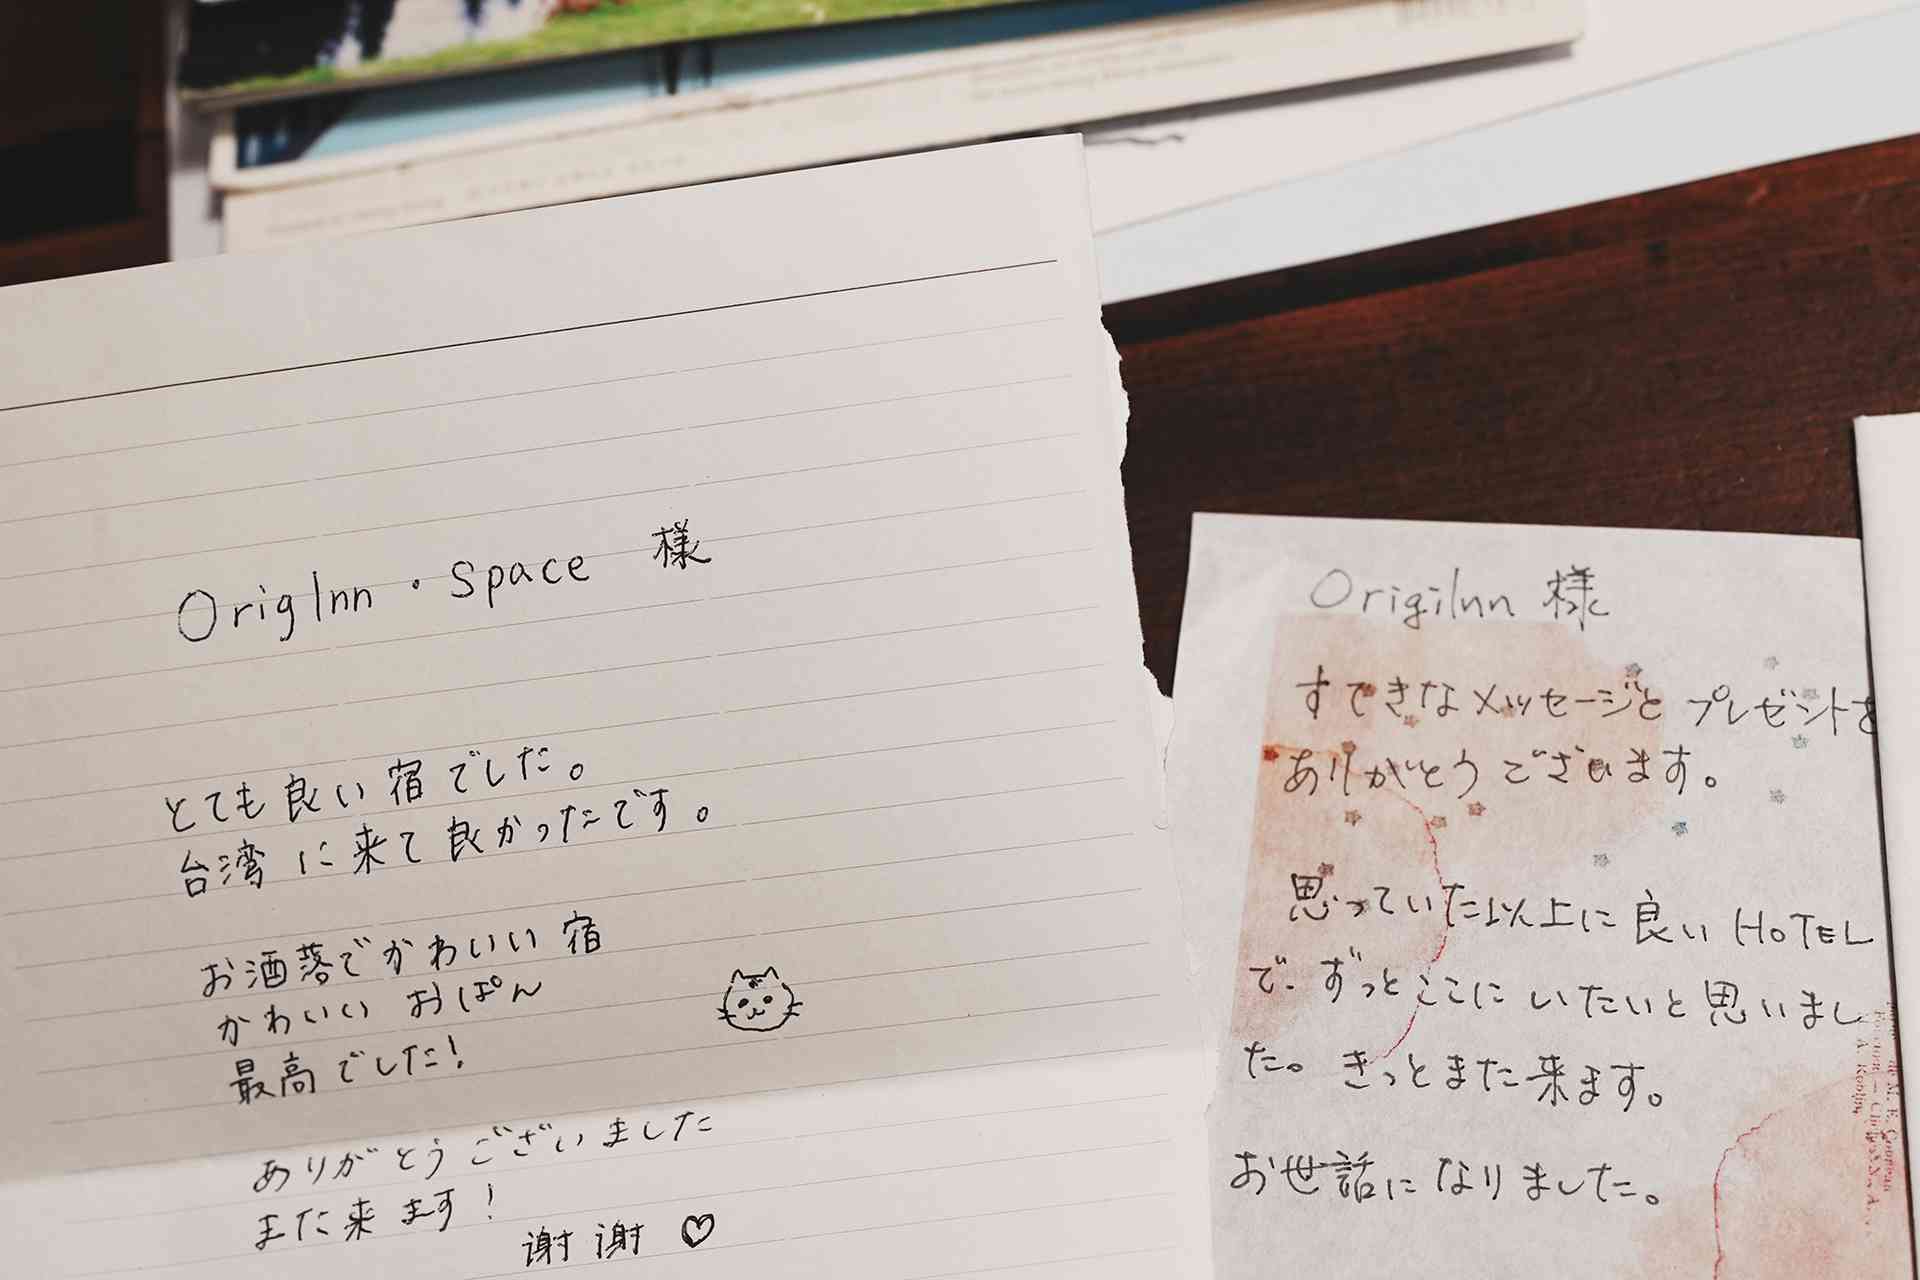 OrigInn・Space 様
とても良い宿でした。
台湾に来て良かったです。
お洒落でかわいい宿
かわいい おぱん
最高でした!
ありがとうございました
また来ます!
谢谢 ♡
OrigiInn 様
すてきなメッセージと プレゼントを
ありがとうございます。
思っていた以上に良い HOTEL
で、ずっとここに いたいと思いまし
た。きっとまた来ます。
お世話になりました。